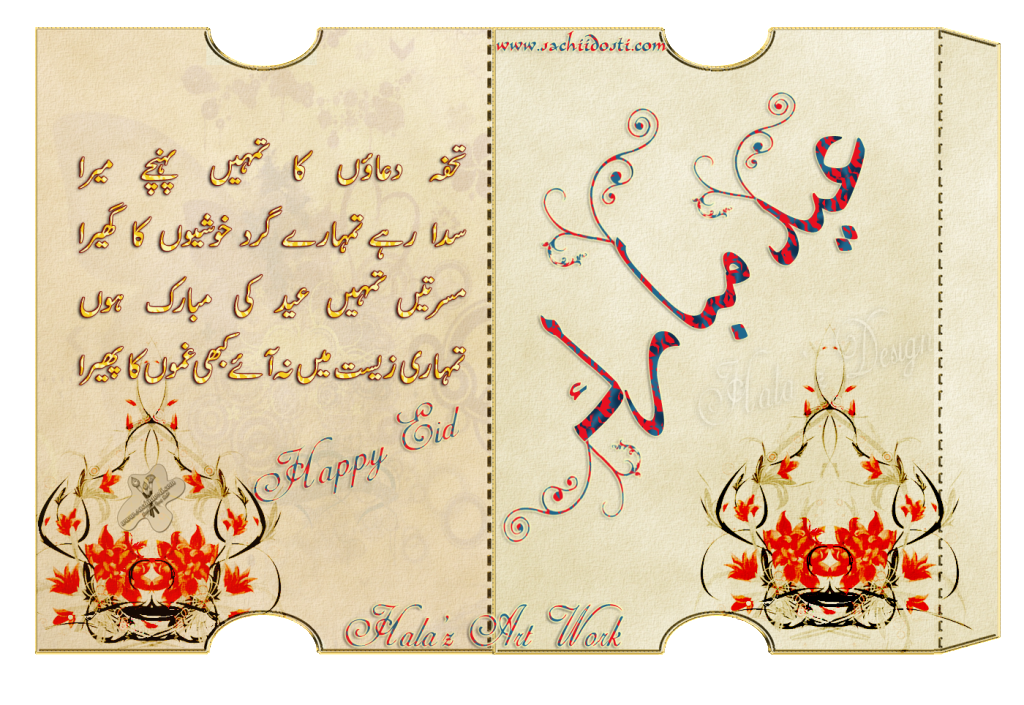 www.sachiidosti.com
تحفہ دعاؤں کا تمہیں پہنچے میرا
سدا رہے تمہارے گرد خوشیوں کا گھیرا
مسرتیں تمہیں عید کی مبارک ہوں
تمہاری زیست میں نہ آئے کبھی غموں کا پھیرا
Happy Eid
عید مبارک
Hala Design
Hala'z Art Work